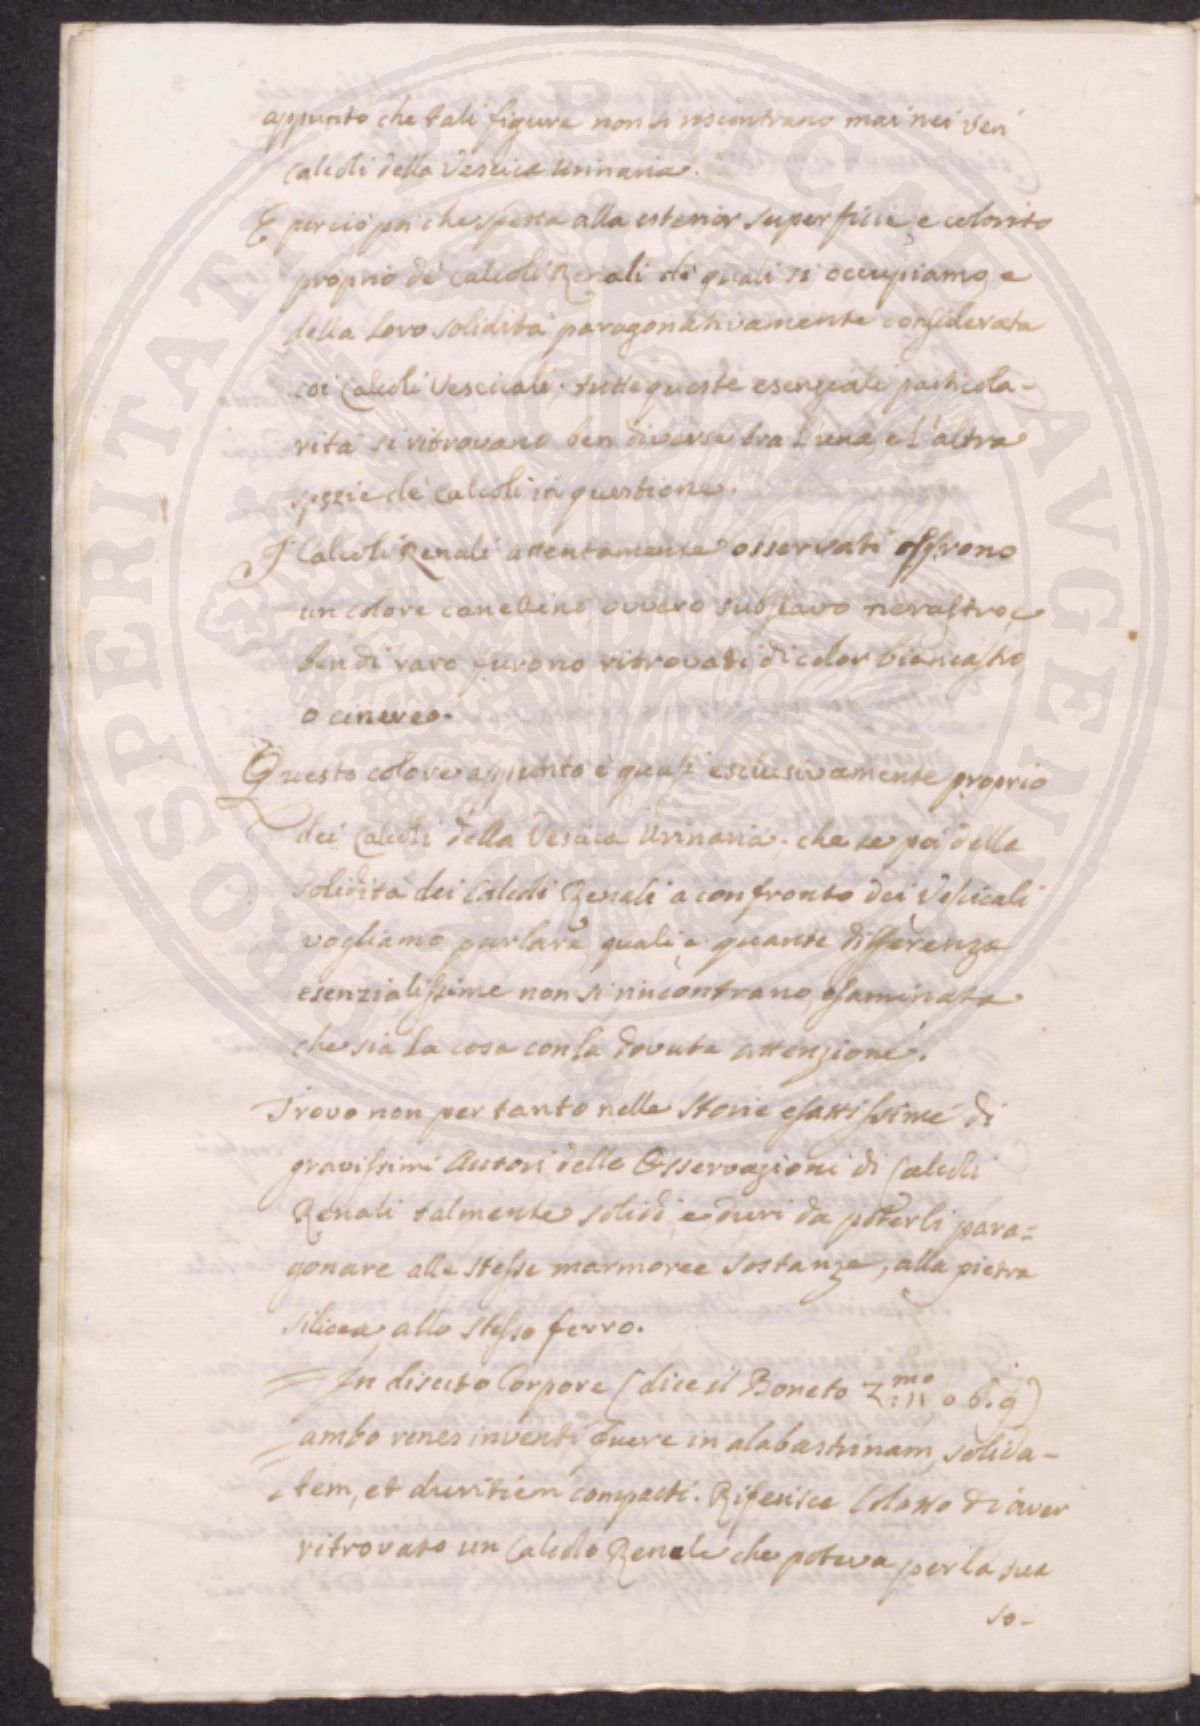 appunto che tali figure non si riscontrano mai nei veri
Calcoli della Vescica Urinaria.
E per ciò poi che spetta alla esterior superficie, e colorito
proprio de' Calcoli Renali de' quali si occupiamo, e
della loro solidità paragonativamente considerata
coi Calcoli Vescicali; tutte queste esenziali particola-
rità si ritrovano ben diverse tra l'una, e l'altra
spezie de' Calcoli in questione.
I Calcoli Renali attentamente osservati offrono
un colore canellino, ovvero subflavo nerastro, e
ben di raro furono ritrovati di color biancastro,
o cinereo.
Questo colore appunto è quasi esclusivamente proprio
dei Calcoli della Vescica Urinaria; che se poi della
solidità dei Calcoli Renali a confronto dei Vescicali
vogliamo parlare, quali, e quante differenze
esenzialissime non si rincontrano, esaminata
che sia la cosa con la dovuta attenzione.
Trovo non per tanto nelle Storie esattissime di
gravissimi Autori delle Osservazioni di Calcoli
Renali talmente solidi, e duri da poterli para=
gonare alle stesse marmoree sostanze, alla pietra
silicea, allo stesso ferro.
In disecto Corpore (dice il Boneto ob. 9)
ambo renes inventi fuere in alabastrinam, solida-
tem, et duritiem compacti. Riferisce di aver
ritrovato un Calcolo Renale che poteva per la sua
so-
PROSPERITATI PUBLICAE AUGENDAE